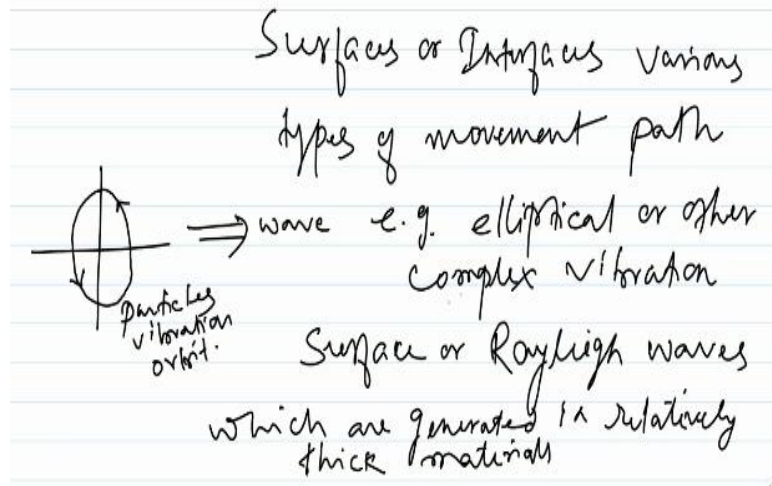 Surfaces or Interfaces various
types of movement path
wave e.g. elliptical or other
complex vibration
particles
vibration
orbit.
Surface or Rayleigh waves
which are generated in relatively
thick materials